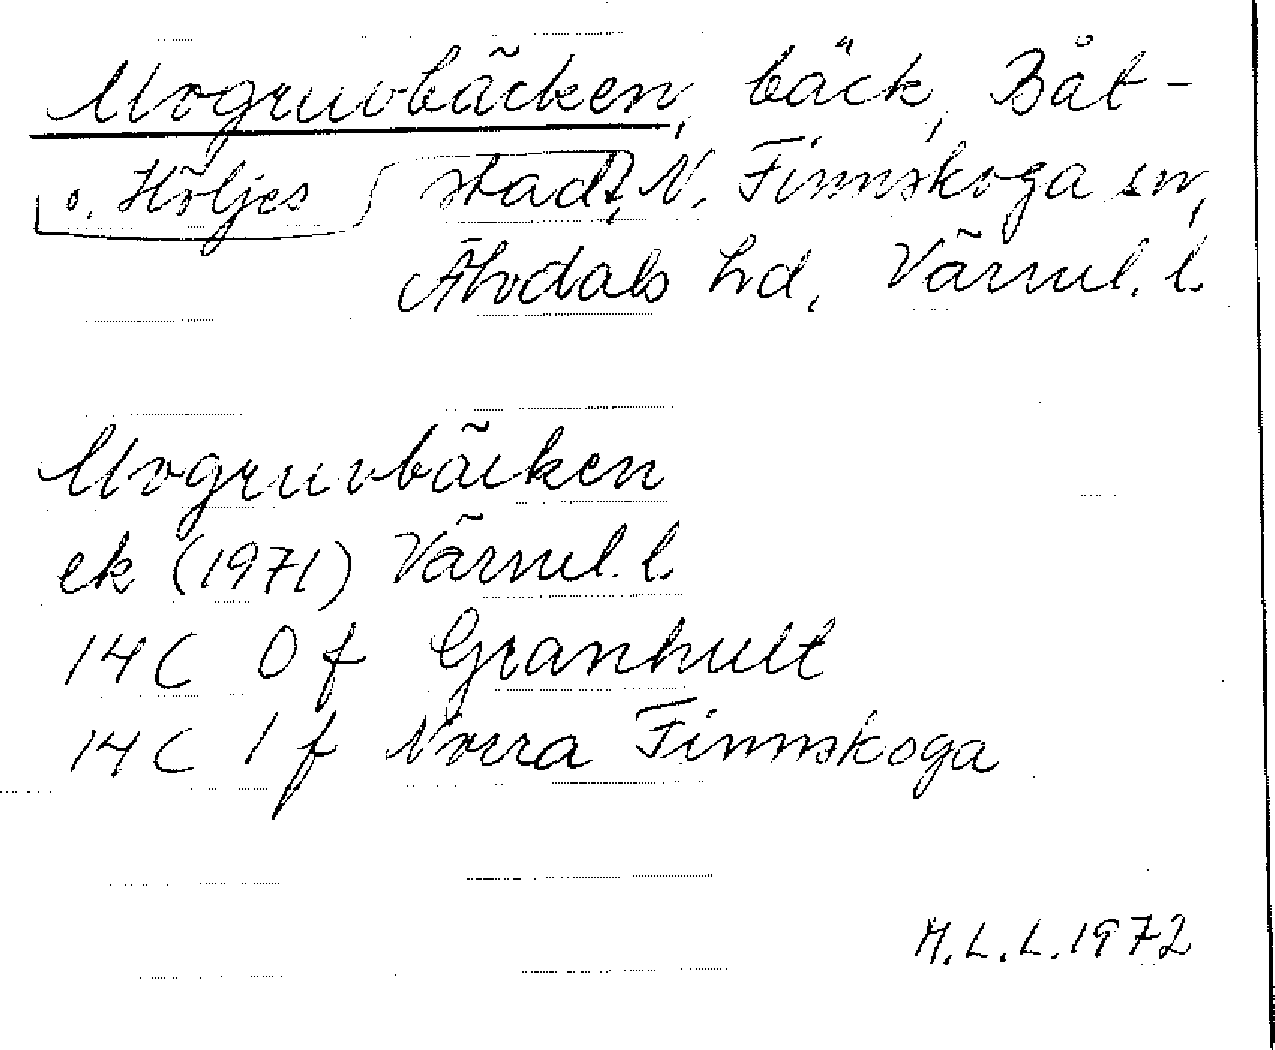 Mogruvbäcken, bäck, Båt-
o. Höljes stad, N. Finnskoga sn,
Älvdals hd, Värml. l.
Mogruvbäcken
ek (1971) Värml. l.
14C 0 f Granhult
14C 1 f Norra Finnskoga
M.L.L. 1972